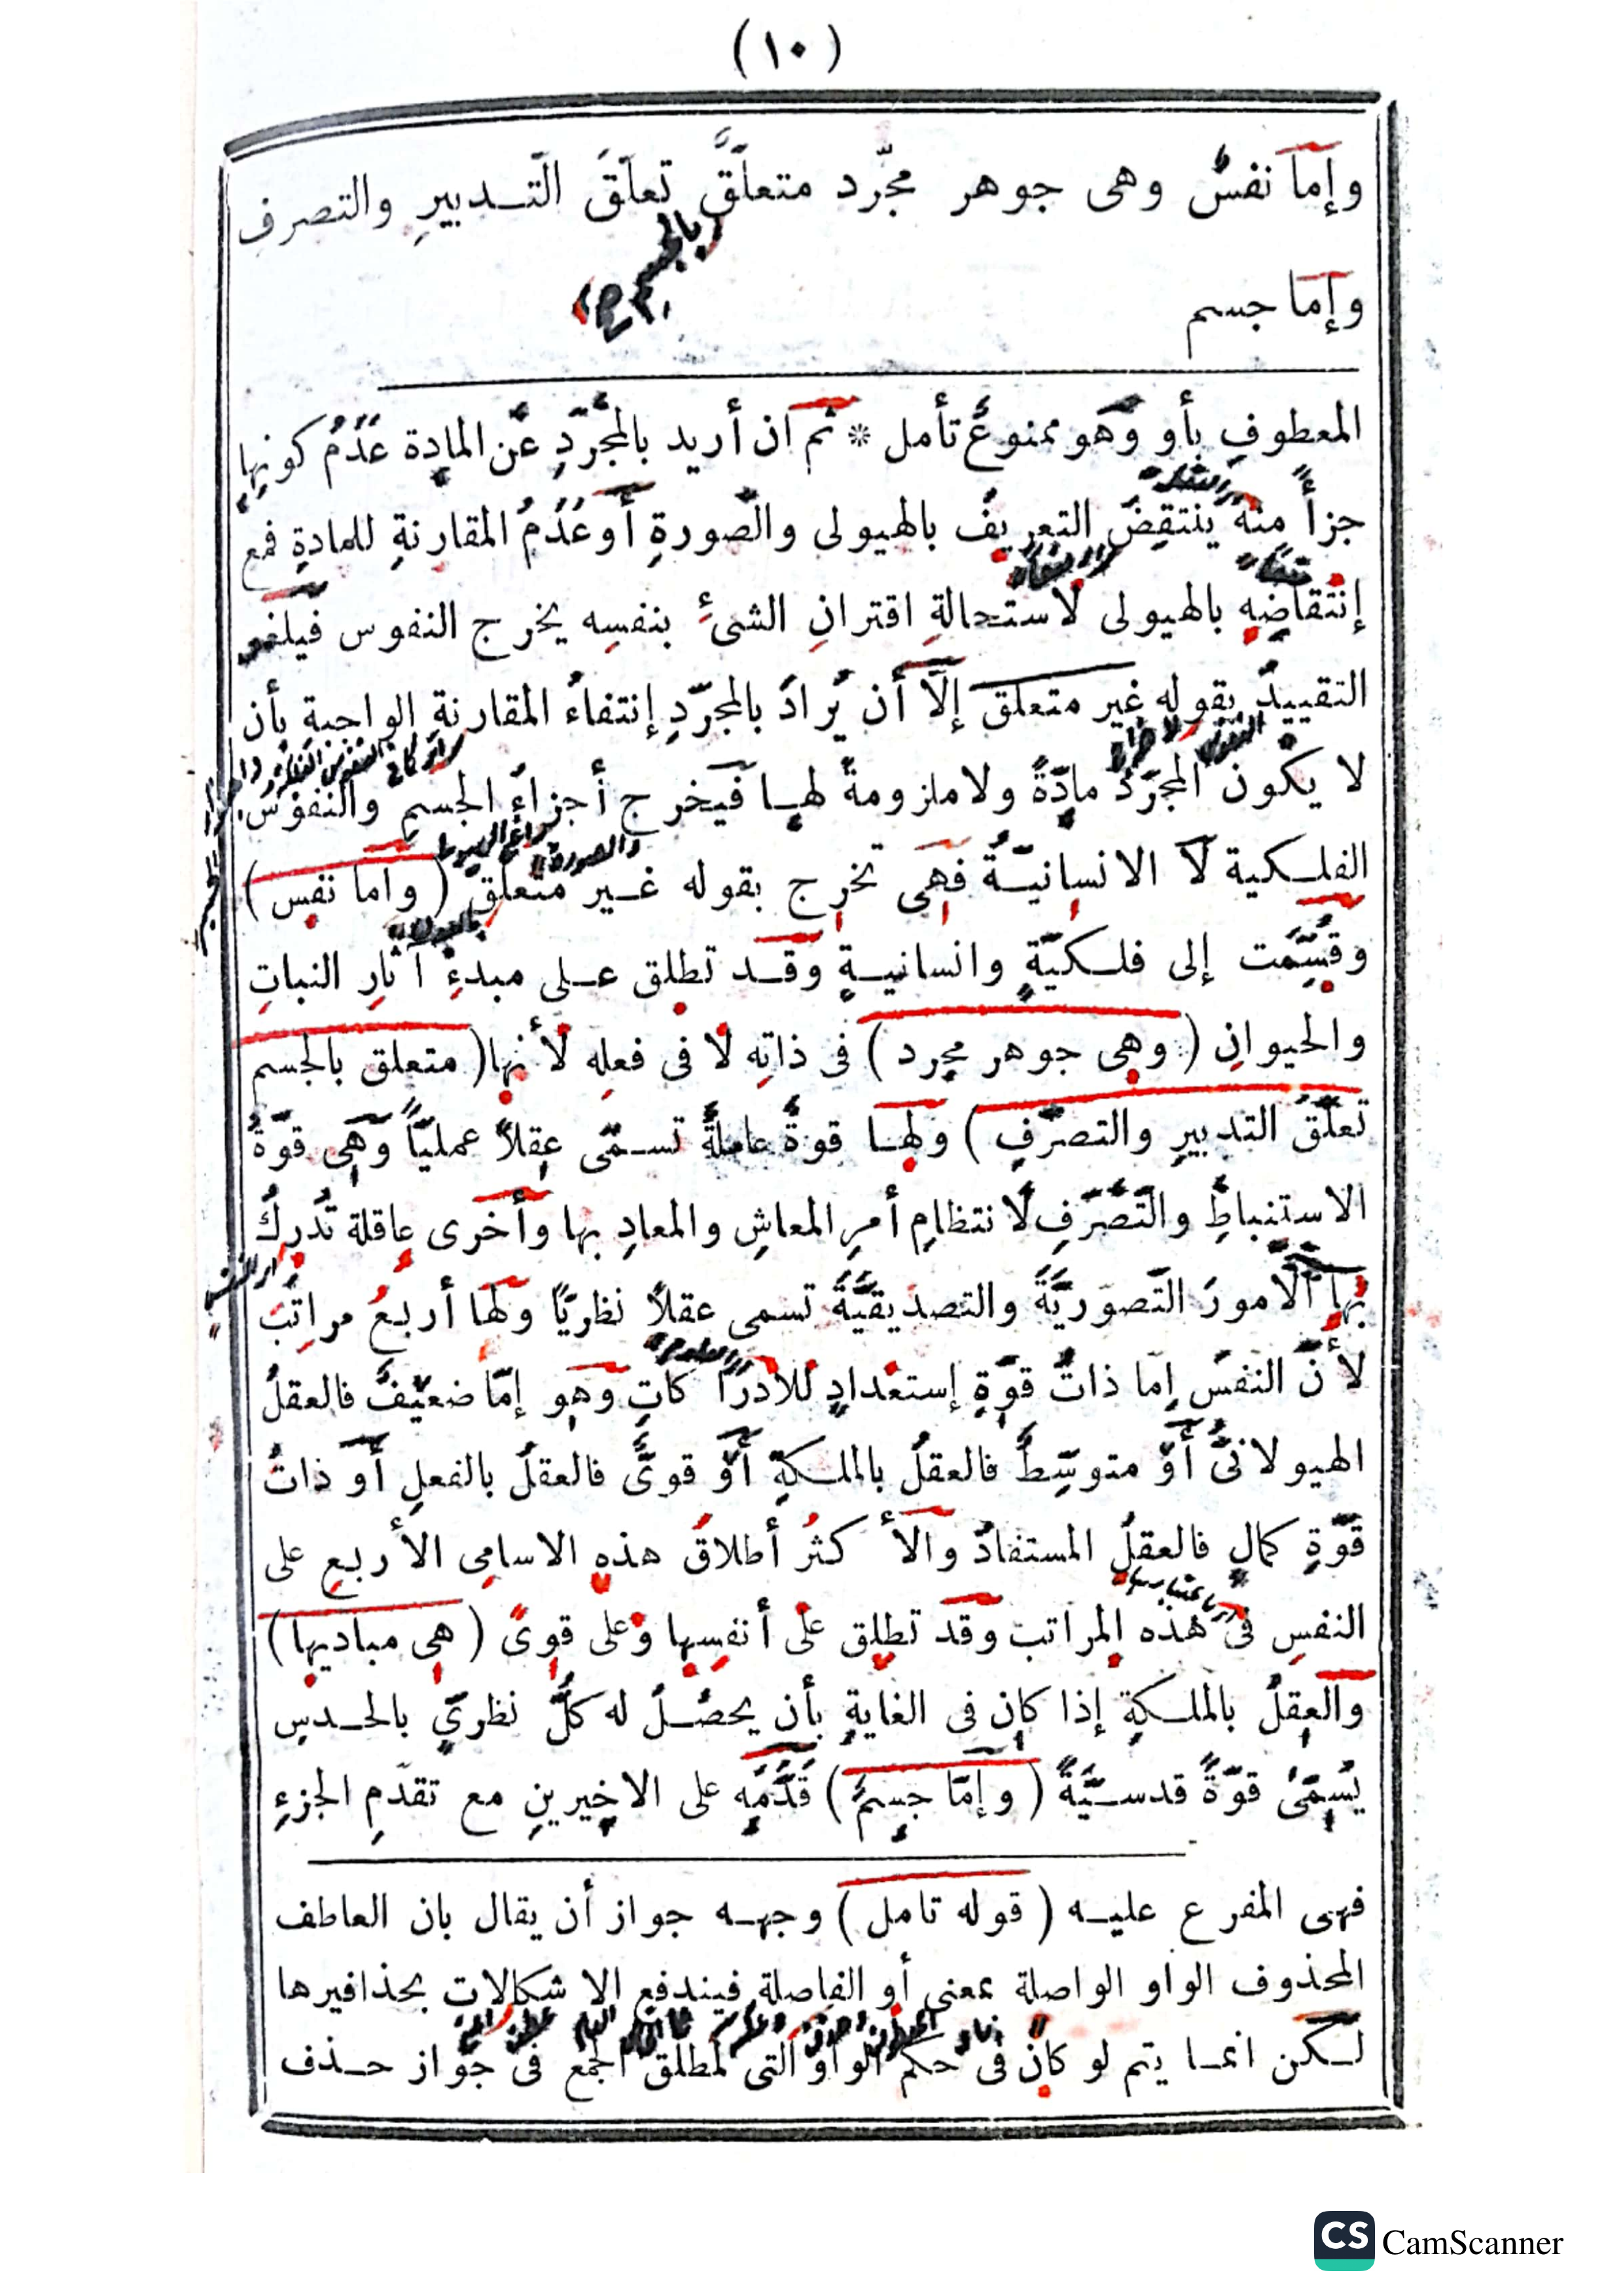 (١٠)
وإما نفسٌ وهى جوهر مجرّد متعلَّقٌ تعلّقَ التّـدبيرِ والتصرفِ
بالجسم
وإما جسم
المعطوفِ بأو وَهو ممنوعٌ تأمل * ثم ان أريد بالمجرّدِ عن المادة عدمُ كونها
جزأً منه ينتقضُ التعريفُ بالهيولى والصورةِ أو عدمُ المقارنةِ للمادةِ فمع
إنتقاضِهِ بالهيولى لاستحالةِ اقترانِ الشئِ بنفسِه يخرج النفوس فيلغو
التقييدُ بقوله غير متعلق إلَّا أن يُرادَ بالمجرّدِ إنتفاءُ المقارنةِ الواجبةِ بأن
لا يكونَ المجرّدُ مادّةً ولا ملزومةً لهـا فيخرج أجزاءُ الجسمِ والنفوسُ
الفلـكية لَا الانسانيـّةُ فهى تخرج بقوله غـير متعلق (واما نفس)
وقُسِّمَت إلى فلـكيّةٍ وانسانيـةٍ وقـد تطلق عـلى مبدءِ آثارِ النباتِ
والحيوانِ (وهى جوهر مجرد) فى ذاتِه لا فى فعلِهِ لأنها (متعلق بالجسم
تعلّقَ التدبيرِ والتصرّفِ) ولهـا قوةٌ عاملةٌ تسـمّى عقلاً عمليّاً وهى قوّةُ
الاستنباطِ والتّصرّفِ لانتظامِ أمرِ المعاشِ والمعادِ بها وأخرى عاقلة تُدركُ
بها الأمورَ التّصوّريّةَ والتصديقيّةَ تسمى عقلاً نظريّاً ولها أربعُ مراتبَ
لأنّ النفسَ إما ذاتُ قوّةِ إستعدادٍ للادراكاتِ وهو إمّا ضعيفٌ فالعقلُ
الهيولانىُّ أو متوسّطٌ فالعقلُ بالملـكةِ أو قوىٌّ فالعقلُ بالفعلِ أو ذاتُ
قوّةِ كمالٍ فالعقلُ المستفادُ والأكثرُ أطلاقُ هذه الاسامى الأربعِ على
النفسِ فى هذه المراتب وقد تطلق على أنفسِها وعلى قوىً (هى مباديها)
والعقلُ بالملـكةِ إذا كان فى الغايةِ بأن يحصُـلَ له كلُّ نظرىٍّ بالحـدسِ
يُسمّىٰ قوّةً قدسـيّةً (وإمّا جسمٌ) قدَّمَه على الاخيرينِ مع تقدّمِ الجزءِ
فهى المفرع عليـه (قوله تامل) وجهـه جواز أن يقال بان العاطف
المحذوف الواو الواصلة بمعنى أو الفاصلة فيندفع الاشكالات بحذافيرها
لـكن انمـا يتم لو كان فى حكم الواو التى لمطلق الجمع فى جواز حـذف
CS CamScanner